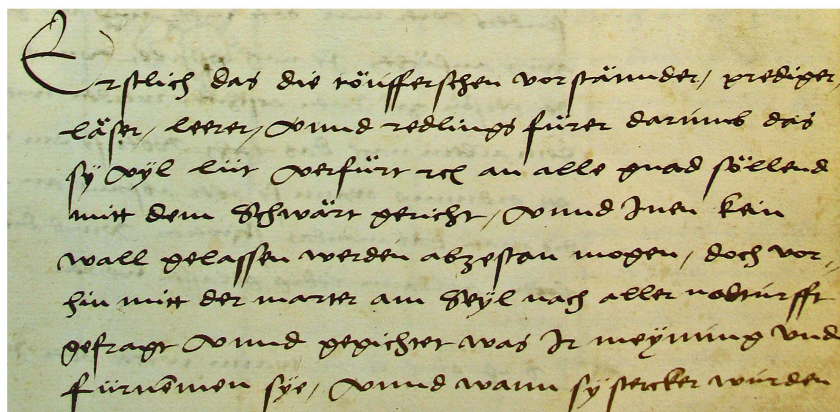 Erstlich das die töüfferschen vorständer, prediger,
läser, leerer, Vnnd redlings fürer darumb das
sÿ Vÿl lüt Verfürt etc an alle gnad söllend
mitt dem Schwärt gericht, Vnnd Inen kein
wall gelassen werden abzestan mogen, doch vor,,
hin mitt der marter am Seÿl nach aller notturfft
gefragt Vnnd gegichtet was Ir meÿnung Vnd
fürnemen sÿe, Vnnd wann sÿ stercker wurden